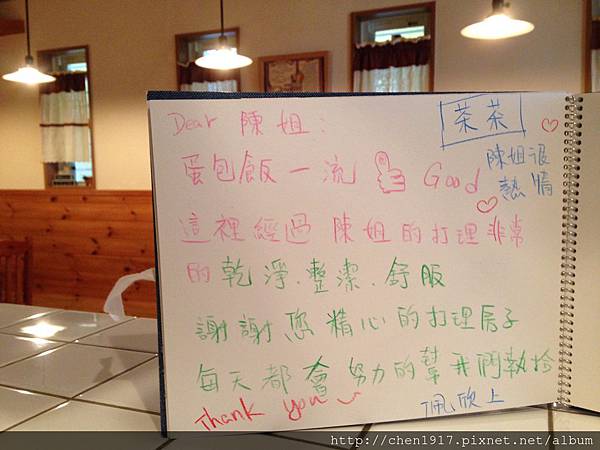 Dear 陳姐:
茶茶
蛋包飯一流 Good
陳姐很
熱情
這裡經過陳姐的打理非常
的乾淨.整潔.舒服
謝謝您精心的打理房子
每天都會努力的幫我們執撿
Thank you
佩欣上
http://chen1917.pixnet.net/album